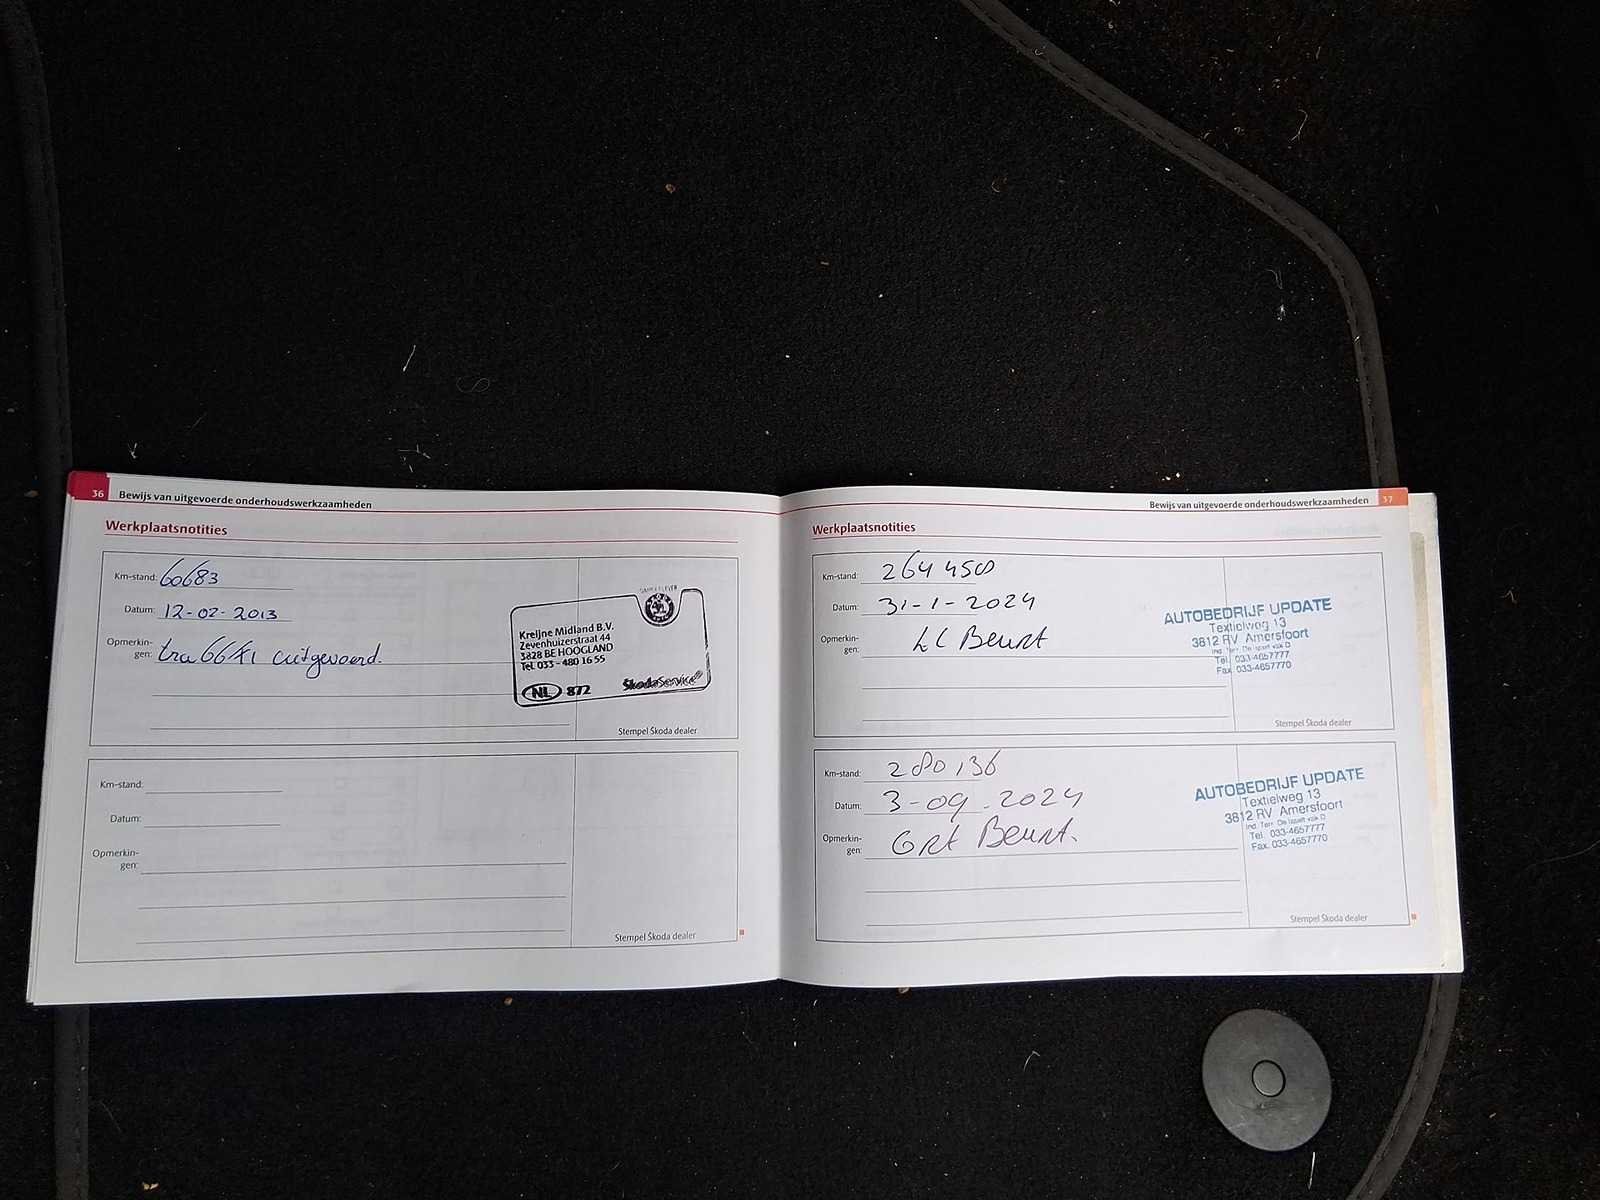 36 Bewijs van uitgevoerde onderhoudswerkzaamheden
Werkplaatsnotities
Km-stand: 60683
Datum: 12-02-2013
Opmerkin-
gen: tra 66 uitgevoerd.
Kreijne Midland B.V.
Zevenhuizerstraat 44
3828 BE HOOGLAND
Tel. 033 - 480 16 55
NL 872 ŠkodaService
Stempel Škoda dealer
Km-stand:
Datum:
Opmerkin-
gen:
Stempel Škoda dealer
Bewijs van uitgevoerde onderhoudswerkzaamheden 37
Werkplaatsnotities
Km-stand: 264 450
Datum: 31-1-2024
Opmerkin-
gen: Beurt
AUTOBEDRIJF UPDATE
Textielweg 13
3812 RV Amersfoort
Ind. Terr. De Isselt vak D
Tel. 033-4657777
Fax. 033-4657770
Stempel Škoda dealer
Km-stand: 280136
Datum: 3-09-2024
Opmerkin-
gen: Grt Beurt.
AUTOBEDRIJF UPDATE
Textielweg 13
3812 RV Amersfoort
Ind. Terr. De Isselt vak D
Tel. 033-4657777
Fax. 033-4657770
Stempel Škoda dealer